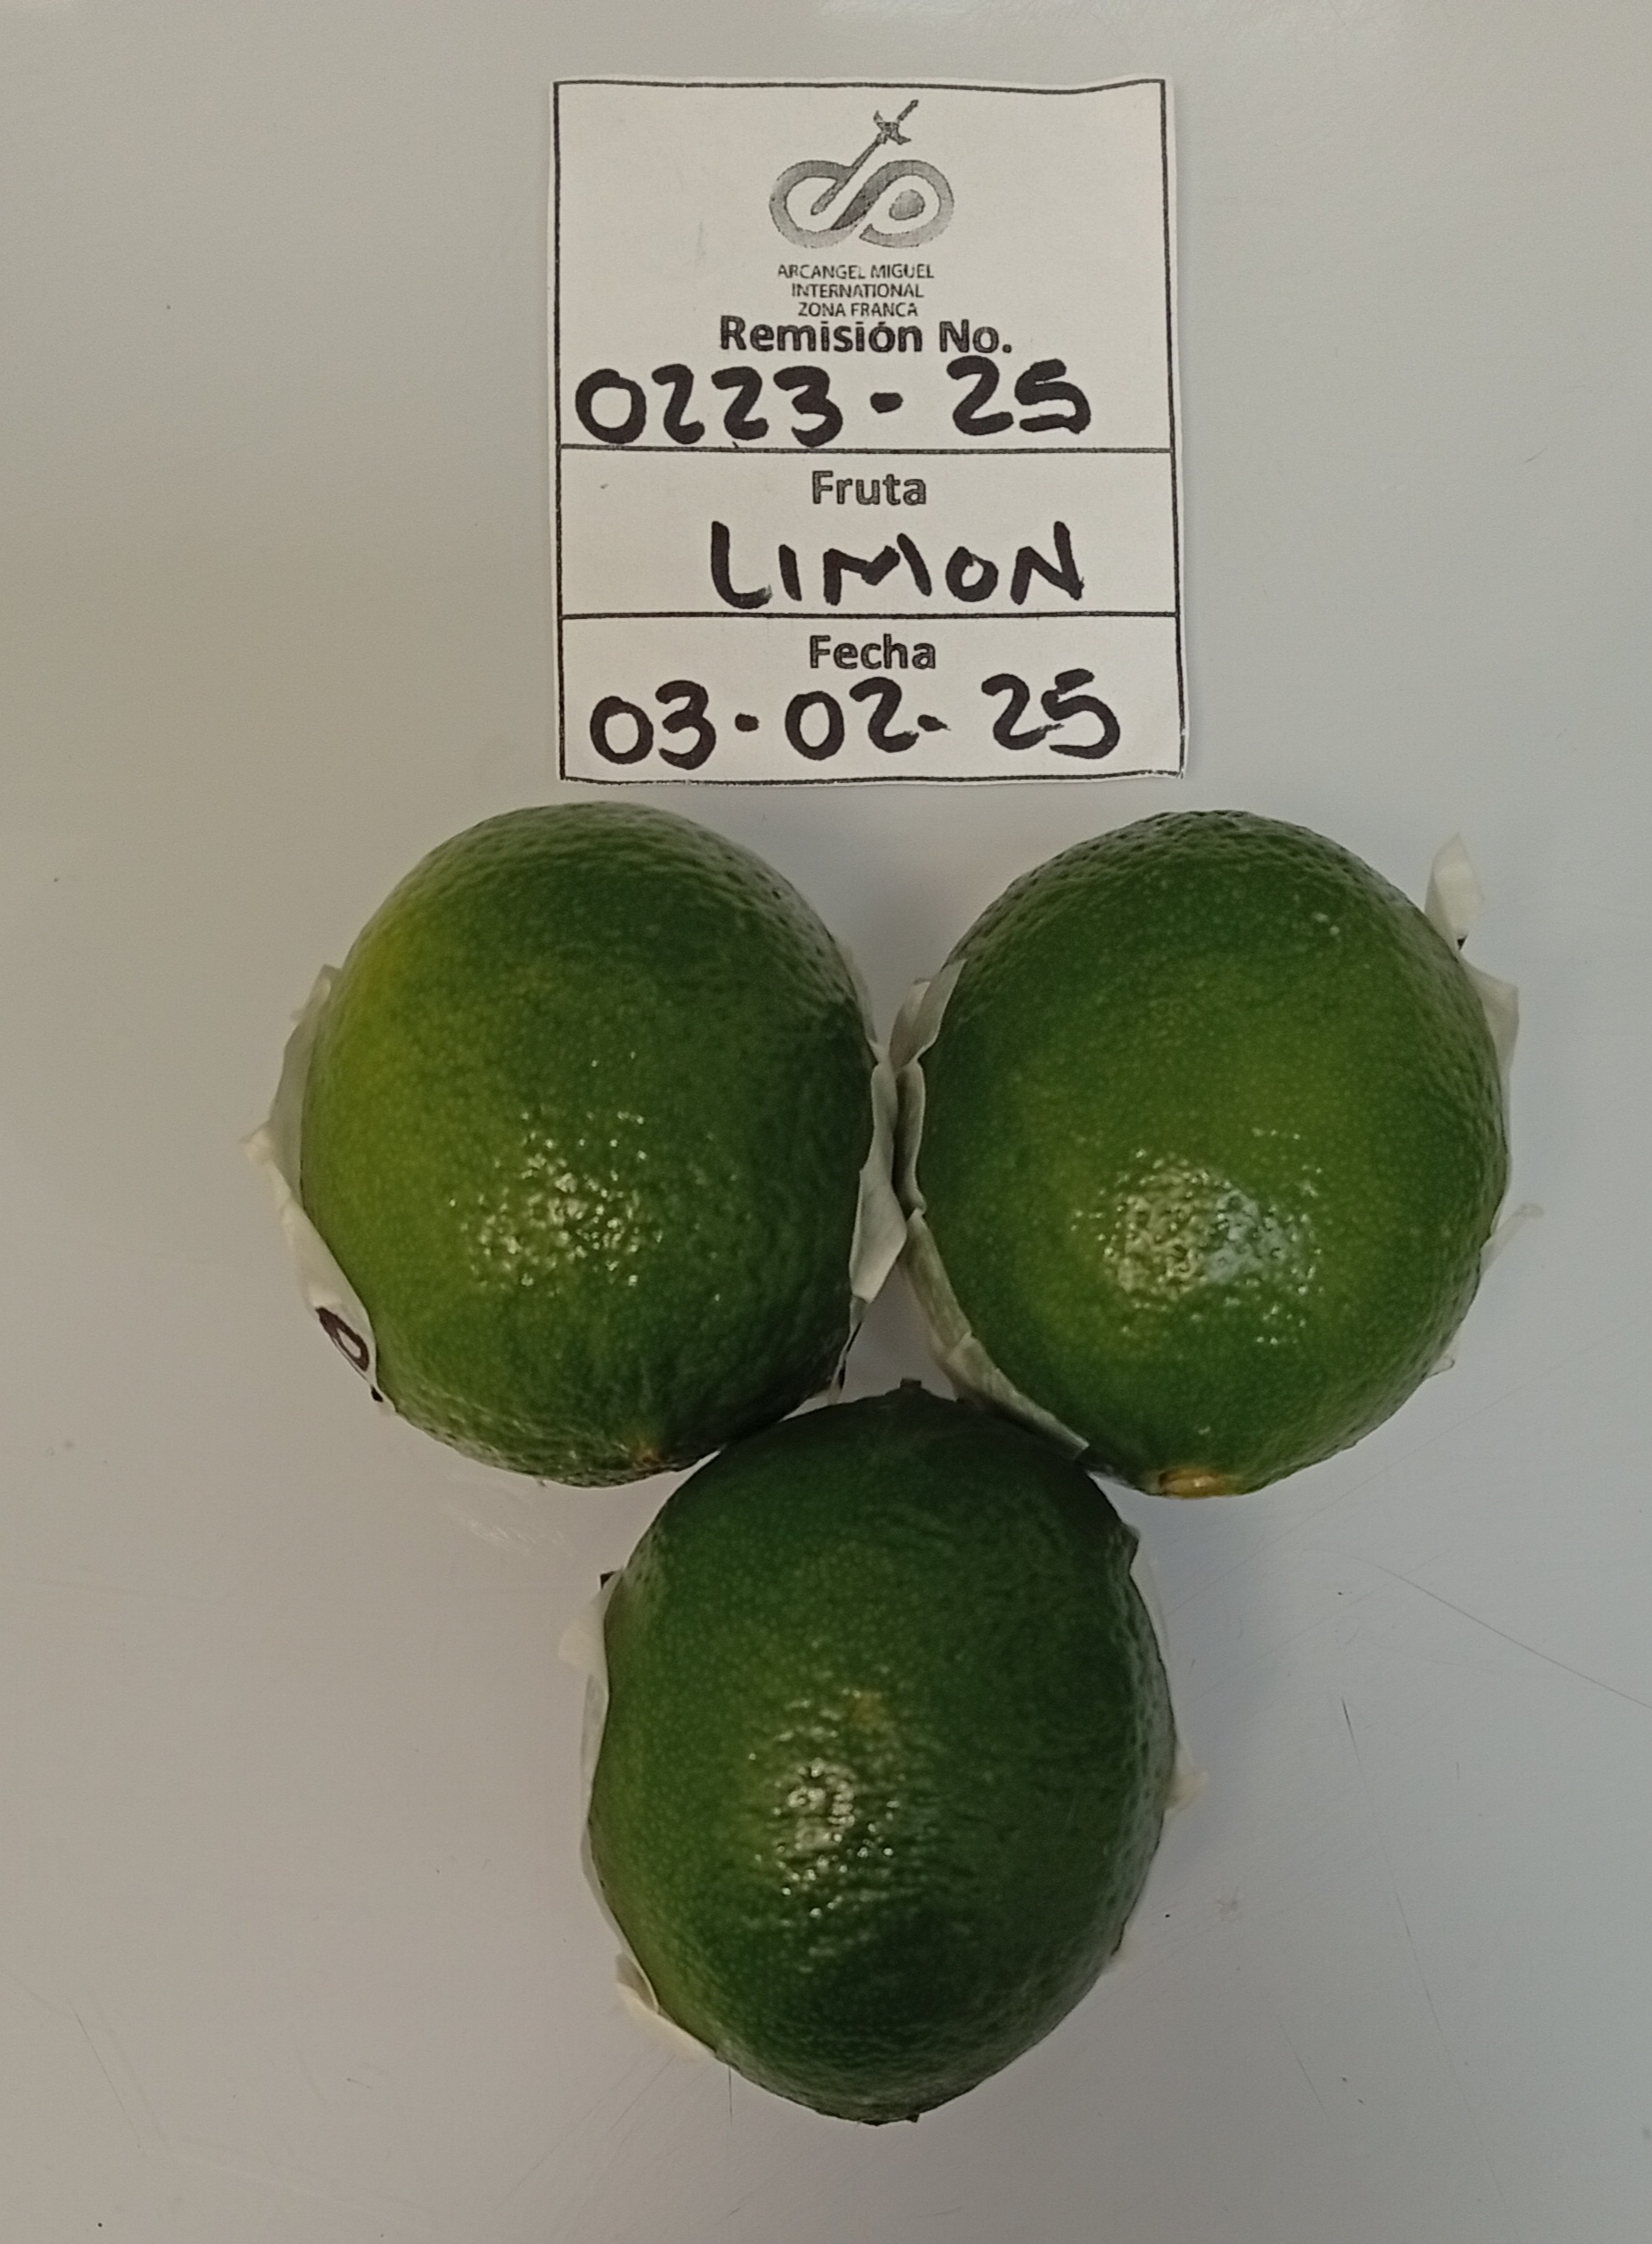 ARCANGEL MIGUEL
INTERNATIONAL
ZONA FRANCA
Remisión No.
0223-25
Fruta
LIMON
Fecha
03-02-25